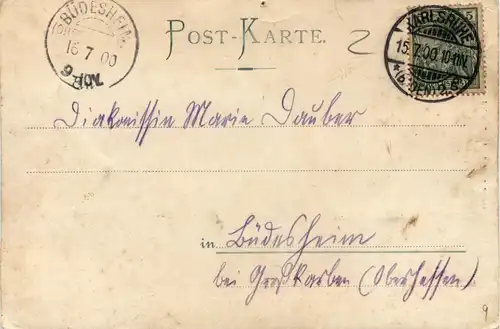 BÜDESHEIM
16 7 00
POST-KARTE.
2
KARLSRUHE
15.7.00.10-11V.
* (BADEN) 2.
5
Diakonissin Marie Dauber
in Büdesheim
bei Großkarben (Oberhessen)
9